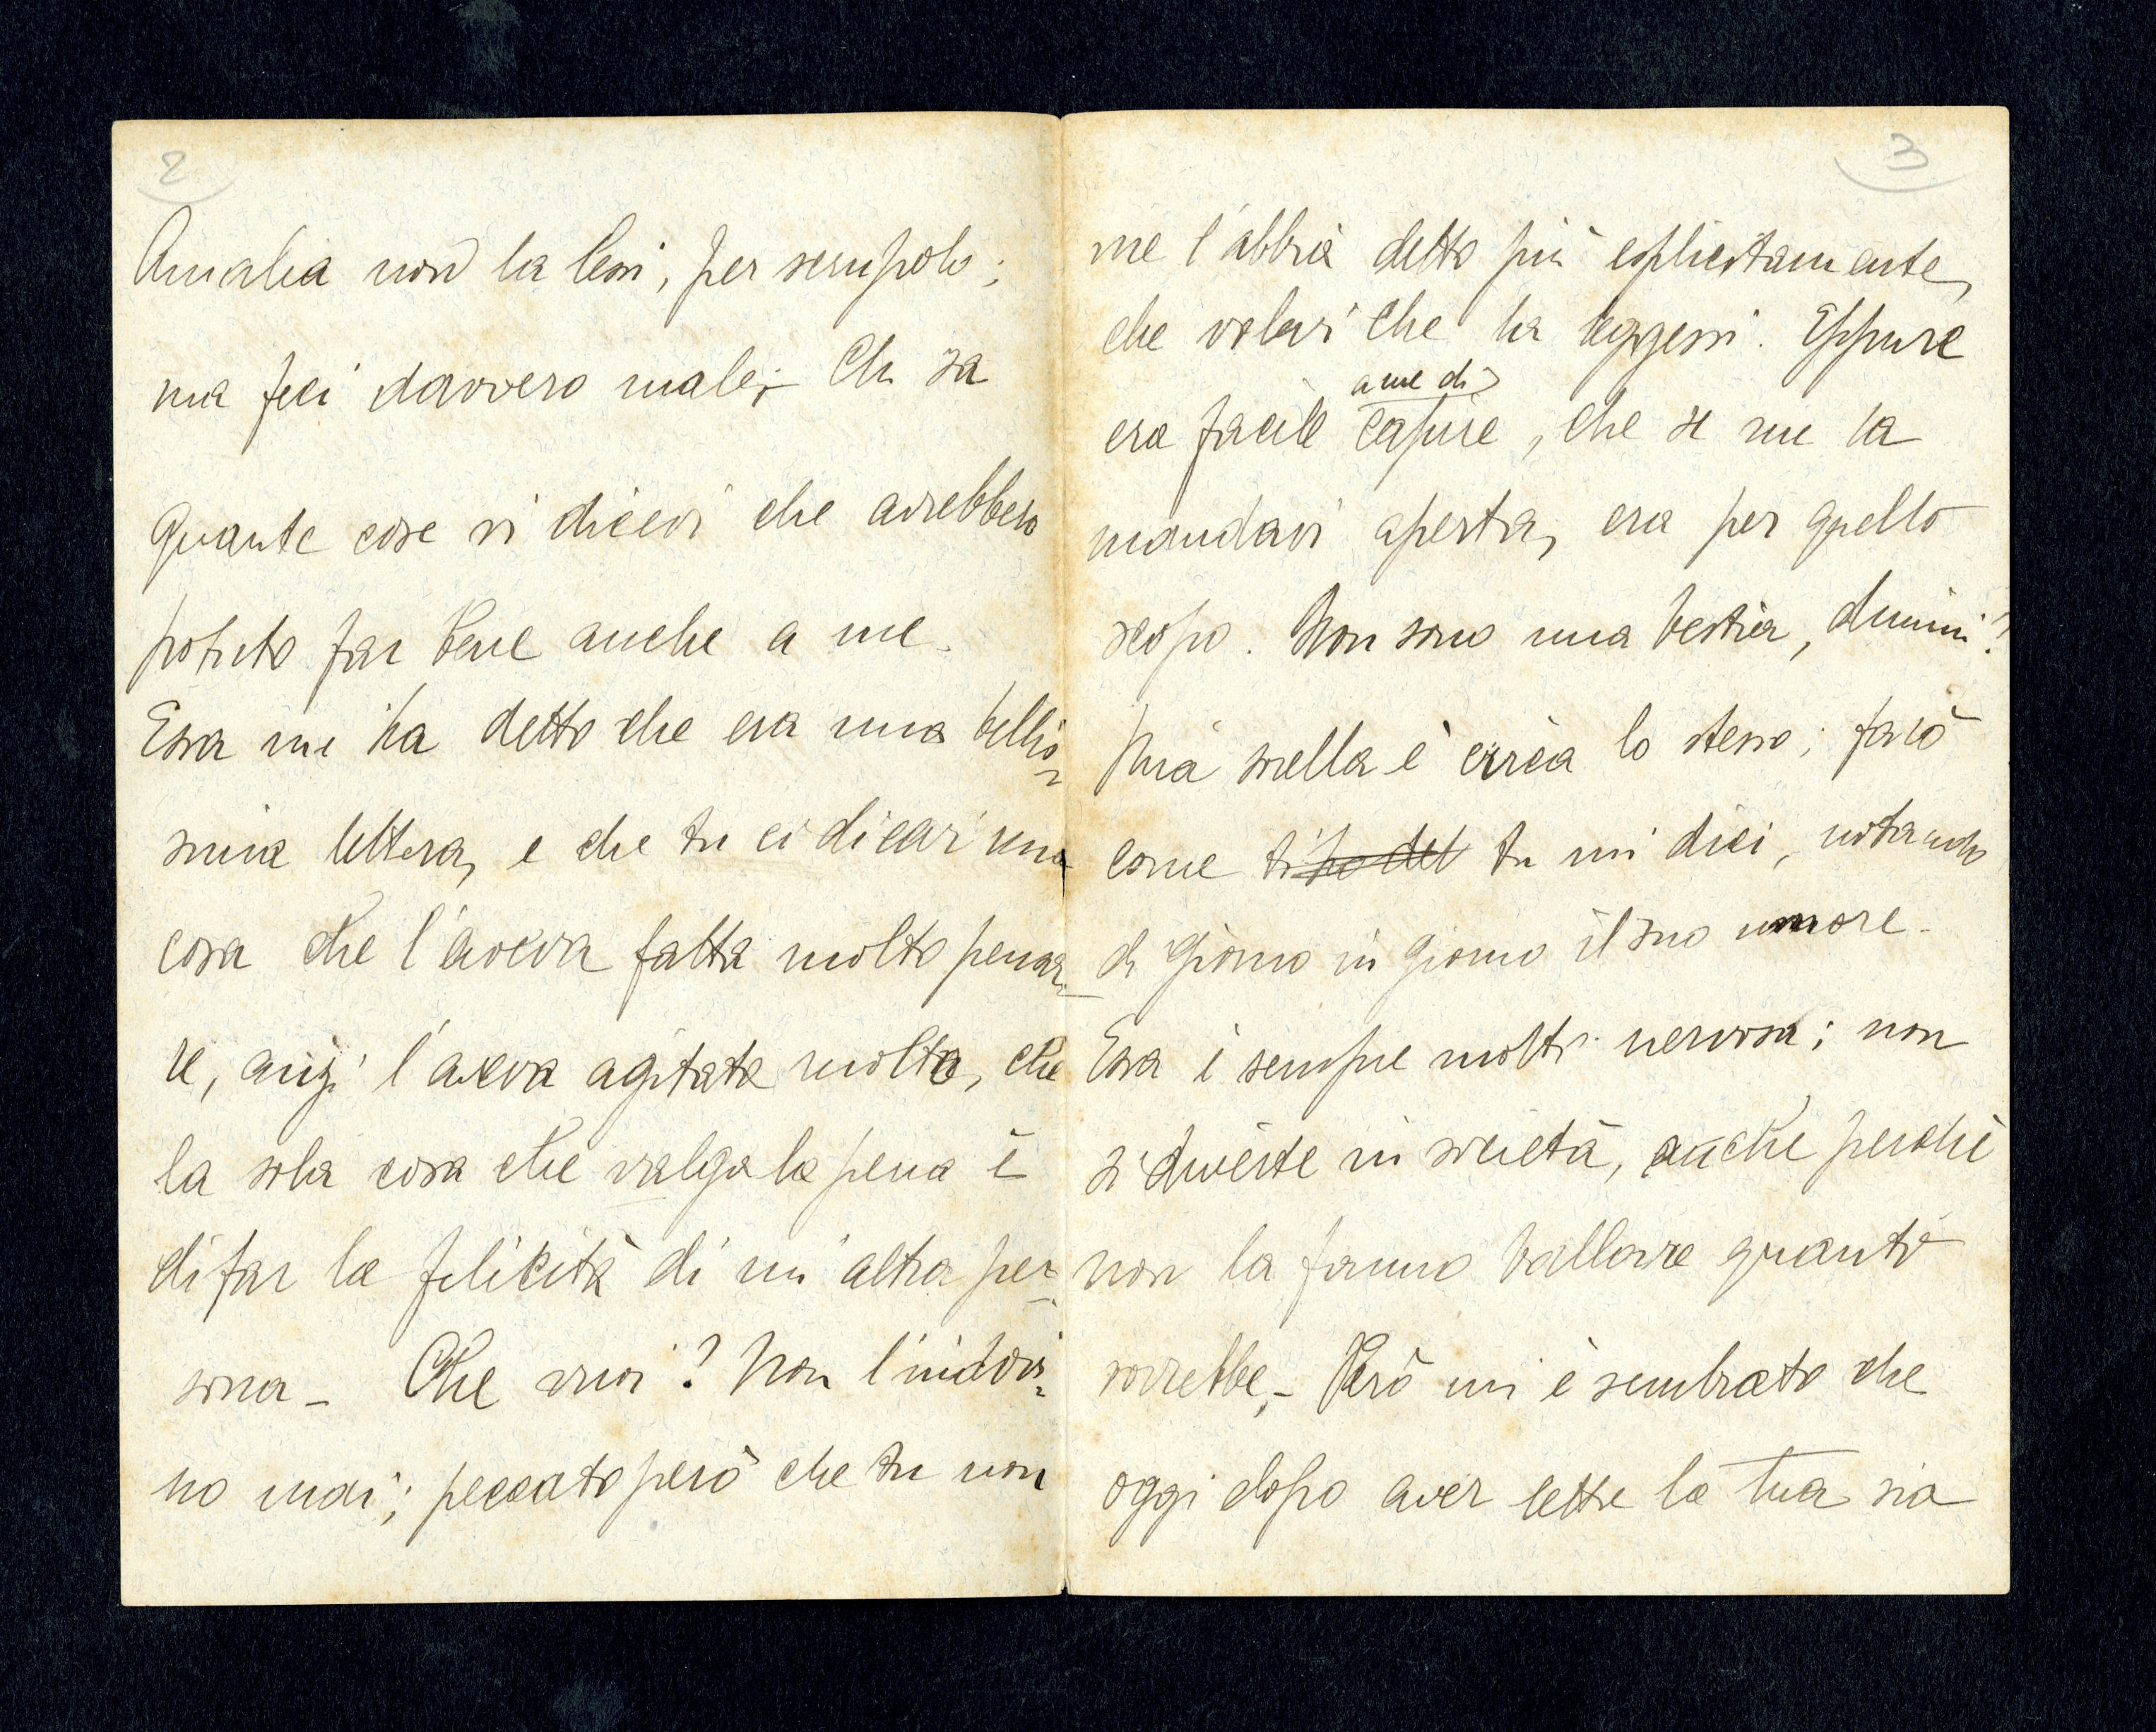 2
Amalia non la lessi, per scrupolo;
ma feci davvero male; – Chi sa
quante cose vi dicevi che avrebbero
potuto far bene anche a me.
Essa me ha detto che era una bellis=
sima lettera, e che tu ci dicevi una
cosa che l'aveva fatta molto pensa=
re, anzi l'aveva agitata molto, che
la sola cosa che valga la pena è
di far la felicità di un'altra per=
sona – Che vuoi? Non l'indovi=
no mai; peccato però che tu non
3
me l'abbia detto più esplicitamente,
che volevi che la leggessi. Eppure
a me di
era facile capire, che se me la
mandavi aperta, era per quello
scopo. Non sono una bestia, dimmi?
Mia sorella è circa lo stesso; farò
come ti ho det tu mi dici, notando
di giorno in giorno il suo umore.
Essa è sempre molto nervosa; non
si diverte in società, anche perchè
non la fanno ballare quanto
vorrebbe; – Però mi è sembrato che
oggi dopo aver letta la tua sia